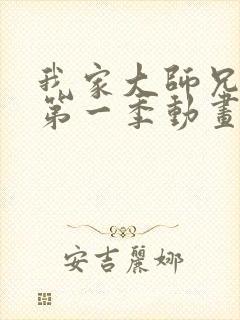 我家大師兄
第一季動畫
安吉麗娜